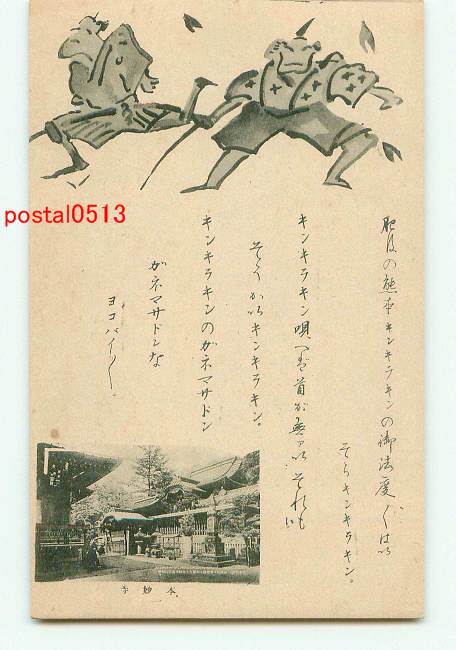 肥後の熊本キンキラキンの御法度〱はい
そらキンキラキン。
キンキラキン唄へば首が無アいそれもい
そうかいキンキラキン。
キンキラキンのガネマサドン
ガネマサドンな
ヨコバイ〱
本妙寺
postal0513